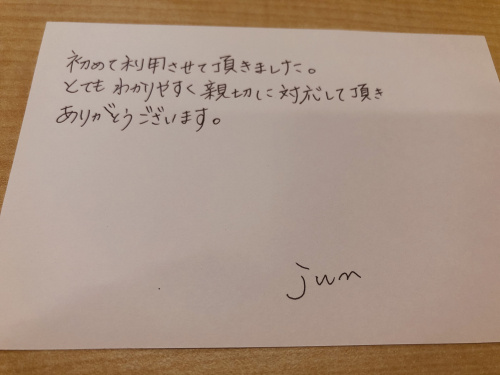 初めて利用させて頂きました。
とてもわかりやすく親切に対応して頂き
ありがとうございます。
jun